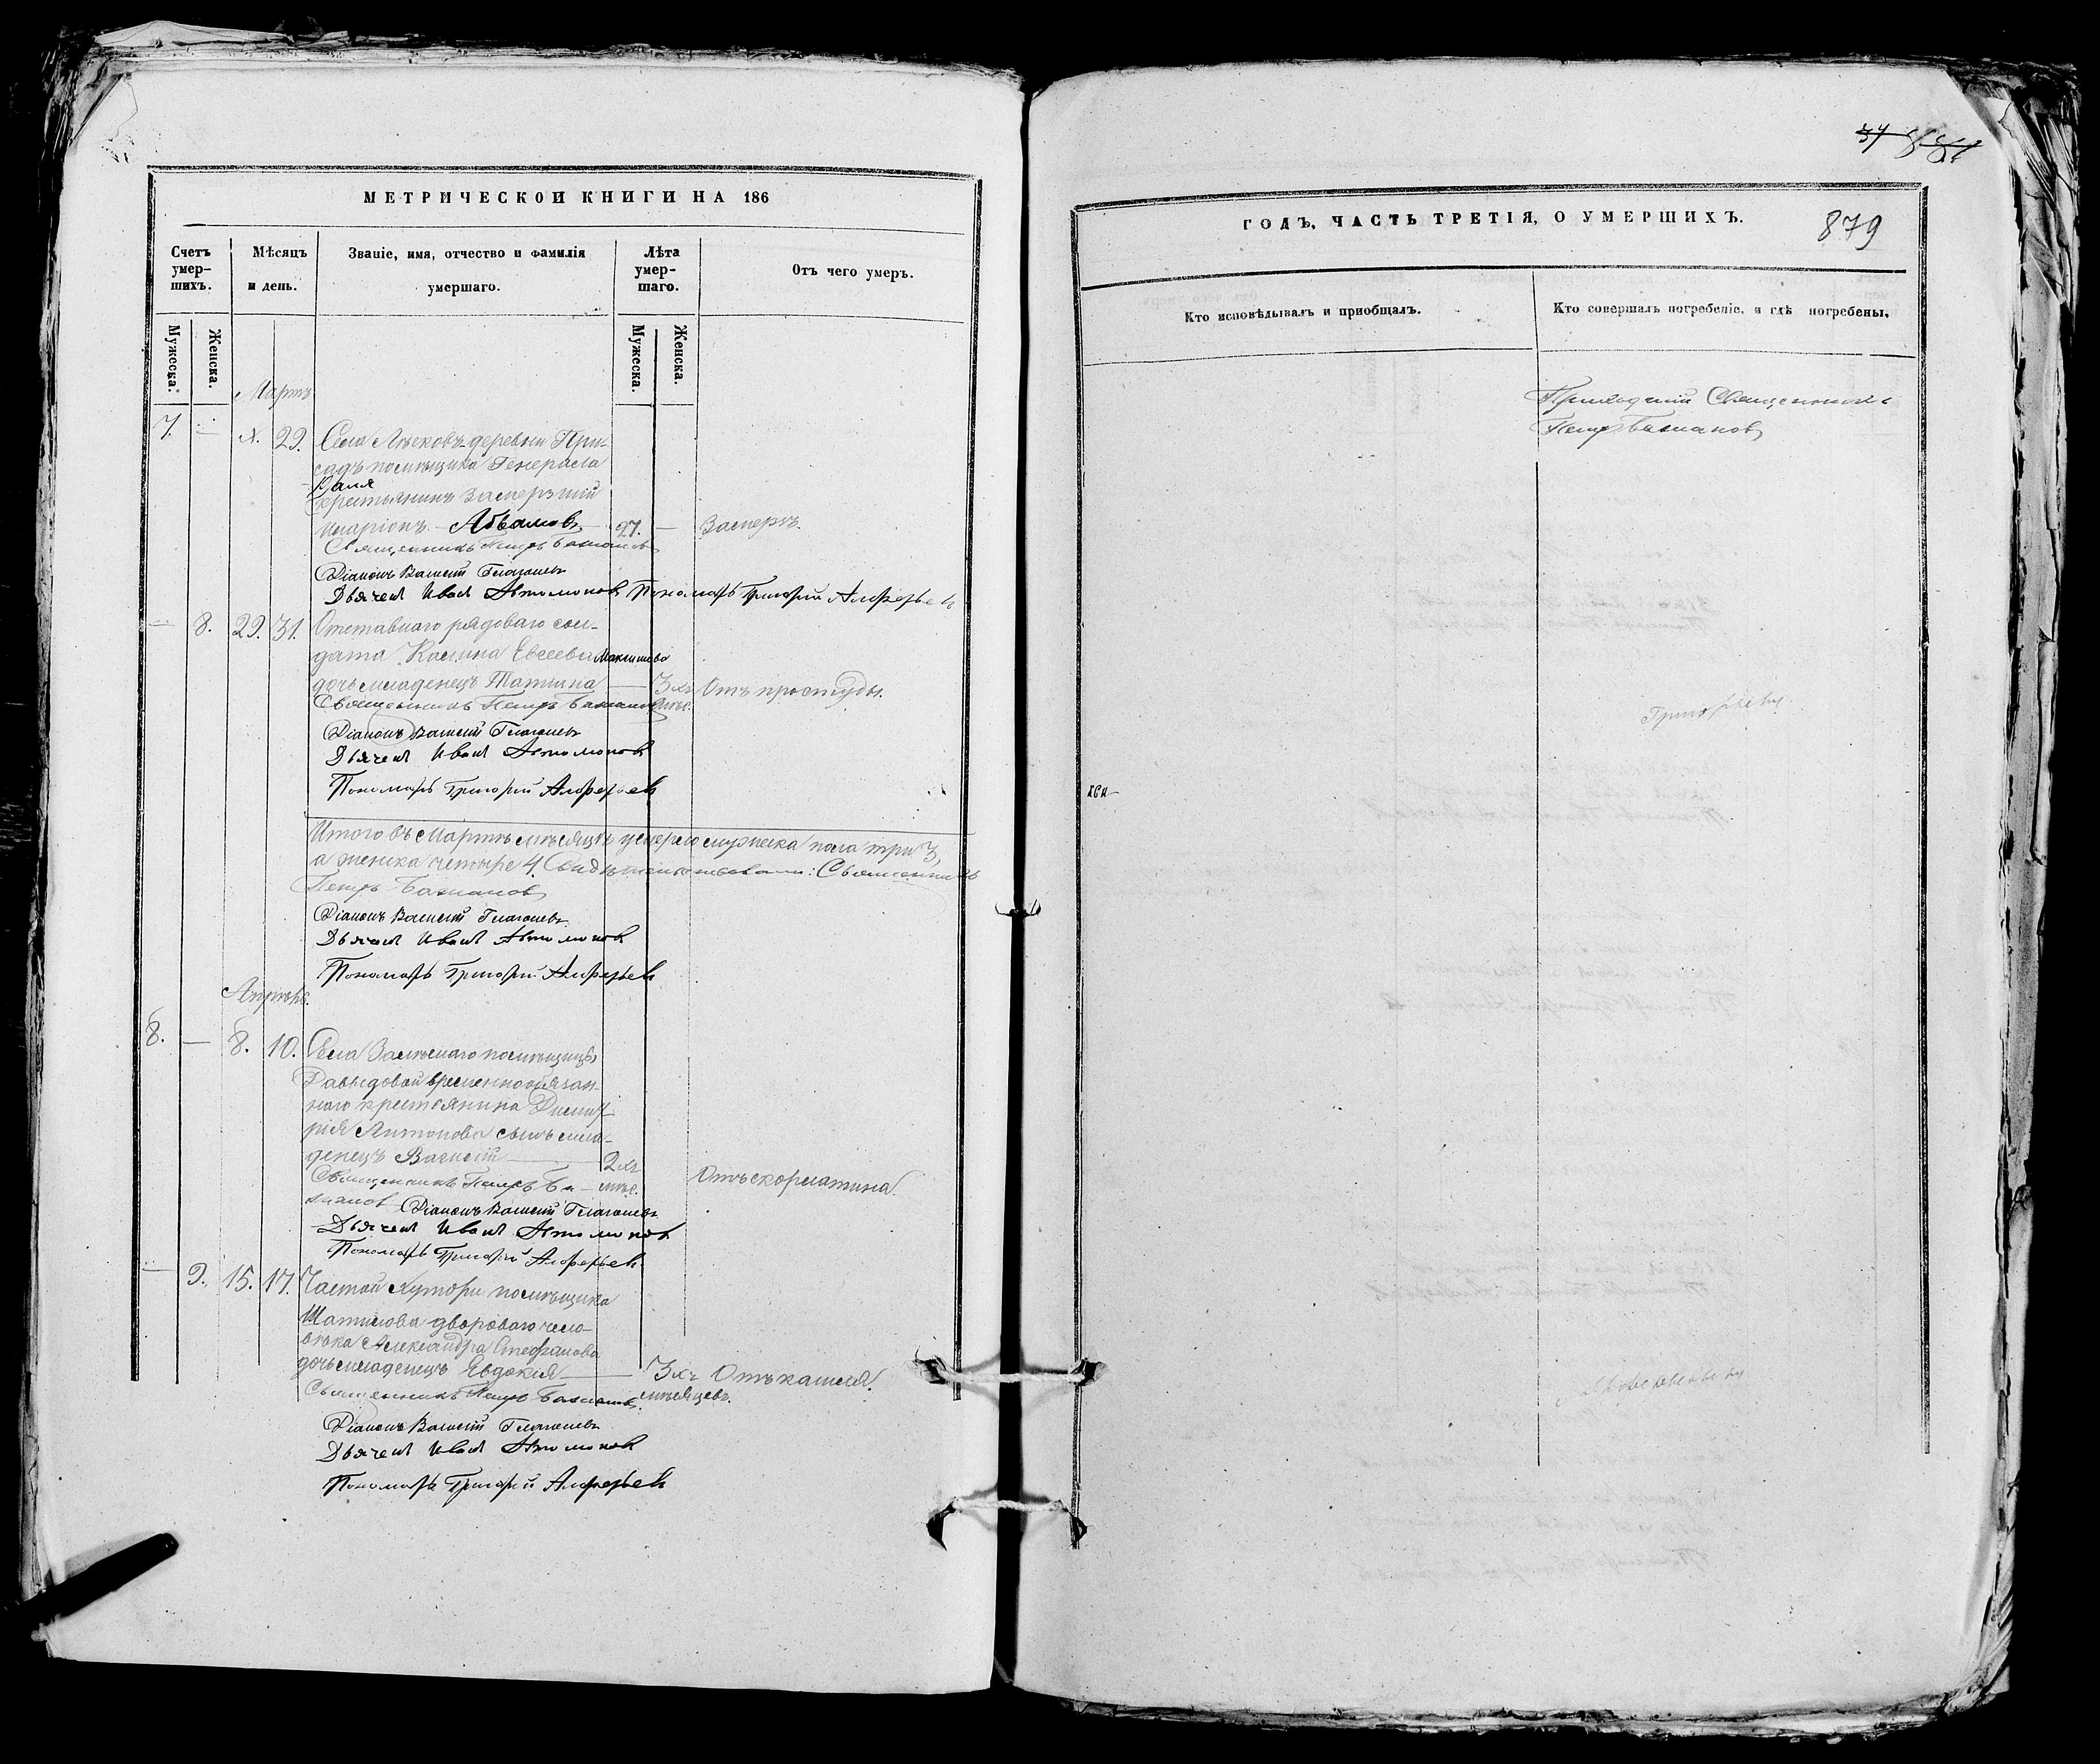 МЕТРИЧЕСКОЙ КНИГИ НА 186
Счетъ умер-шихъ.
Мѣсяцъ и день.
Званіе, имя, отчество и фамилія умершаго.
Лѣта умер-шаго.
Отъ чего умеръ.
Мужеска.
Женска.
Мужеска.
Женска.
Мартъ
7. — 29. Села деревни При-
садъ помѣщика Генерала
крестьянинъ замерзшій
Иларіонъ Абрамовъ 27. — Замерзъ.
Священникъ Петръ Бажановъ
Діаконъ Василій Глаголевъ
Дьячекъ Иванъ Автомоновъ Пономарь Григорій Алферьевъ
— 8. 29. 31. Отставнаго рядоваго сол-
дата Евсеева Максимова
дочь младенецъ Татіана — 3хъ Отъ простуды.
Священникъ Петръ Бажановъ мѣс.
Діаконъ Василій Глаголевъ
Дьячекъ Иванъ Автомоновъ
Пономарь Григорій Алферьевъ
Итого въ Мартѣ мѣсяцѣ умерло мужеска пола три 3,
а женска четыре 4. Свидѣтельствовали: Священникъ
Петръ Бажановъ
Діаконъ Василій Глаголевъ
Дьячекъ Иванъ Автомоновъ
Пономарь Григорій Алферьевъ
Апрѣль.
8. — 8. 10. Села помѣщицы
Давыдовой временнообязан-
наго крестьянина Димит-
рія Антонова сынъ мла-
денецъ Василій — 2хъ
Священникъ Петръ Ба- мѣс. Отъ скорлатина.
жановъ Діаконъ Василій Глаголевъ
Дьячекъ Иванъ Автомоновъ
Пономарь Григорій Алферьевъ
— 9. 15. 17. Частой Хутори помѣщика
Шатилова двороваго чело-
вѣка Александра Стефанова
дочь младенецъ Евдокія — 3хъ Отъ кашля.
Священникъ Петръ Бажановъ мѣсяцевъ.
Діаконъ Василій Глаголевъ
Дьячекъ Иванъ Автомоновъ
Пономарь Григорій Алферьевъ
ГОДЪ, ЧАСТЬ ТРЕТІЯ, О УМЕРШИХЪ.
879
Кто исповѣдывалъ и приобщалъ.
Кто совершалъ погребеніе, и гдѣ погребены.
Приходскій Священникъ
Петръ Бажановъ